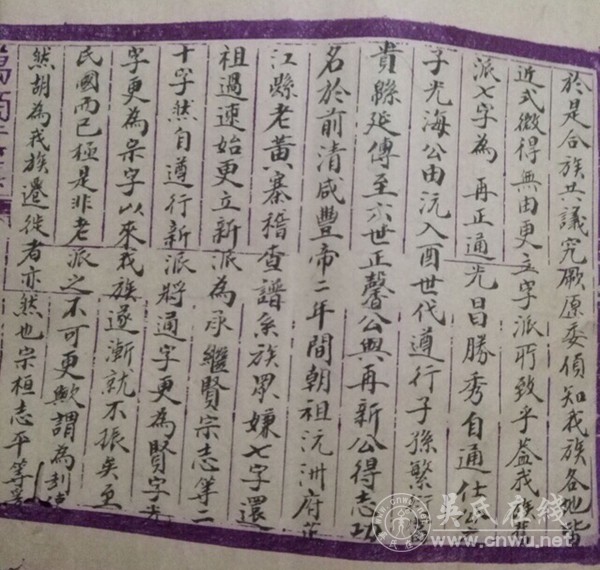 於是合族共議究厥原委偵知我族各地皆
近式微得無由更立字派所致乎蓋我族舊
派七字為再正通光昌勝秀自通仕公
子光海公由沅入酉世代遵行子孫繁衍
貴縣延傳至六世正馨公與再新公得志功
名於前清咸豐帝二年間朝祖沅洲府芷
江縣老黃寨稽查譜系族眾嫌七字還
祖過速始更立新派為承繼賢宗志等二
十字然自遵行新派將通字更為賢字光
字更為宗字以來我族遂漸就不振矣至
民國而已極是非老派之不可更歟謂為
然胡為我族遷徙者亦然也宗桓志平等
吳氏在綫
www.cnwu.net